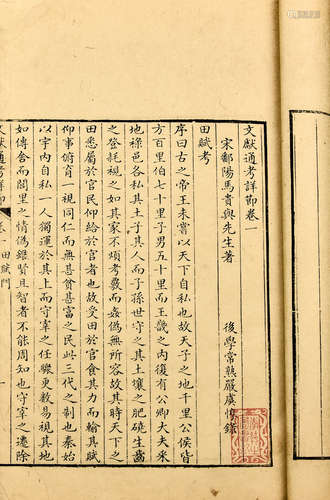 文獻通考詳節卷一
宋鄱陽馬貴與先生著
後學常熟嚴虞惇錄
田賦考
序曰古之帝王未嘗以天下自私也故天子之地千里公侯皆
方百里伯七十里子男五十里而王畿之內復有公卿大夫采
地祿邑各私其土子其人而子孫世守之其土壤之肥磽生齒
之登耗視之如其家不煩考覈而姦偽無所容故其時天下之
田悉屬於官民仰給於官者也故受田於官食其力而輸其賦
仰事俯育一視同仁而無甚貧甚富之民此三代之制也秦始
以宇內自私一人獨運於其上而守宰之任驟更數易視其地
如傳舍而閭里之情偽雖賢且智者不能周知也守宰之遷除
文獻通考詳節 卷一 田賦門 一